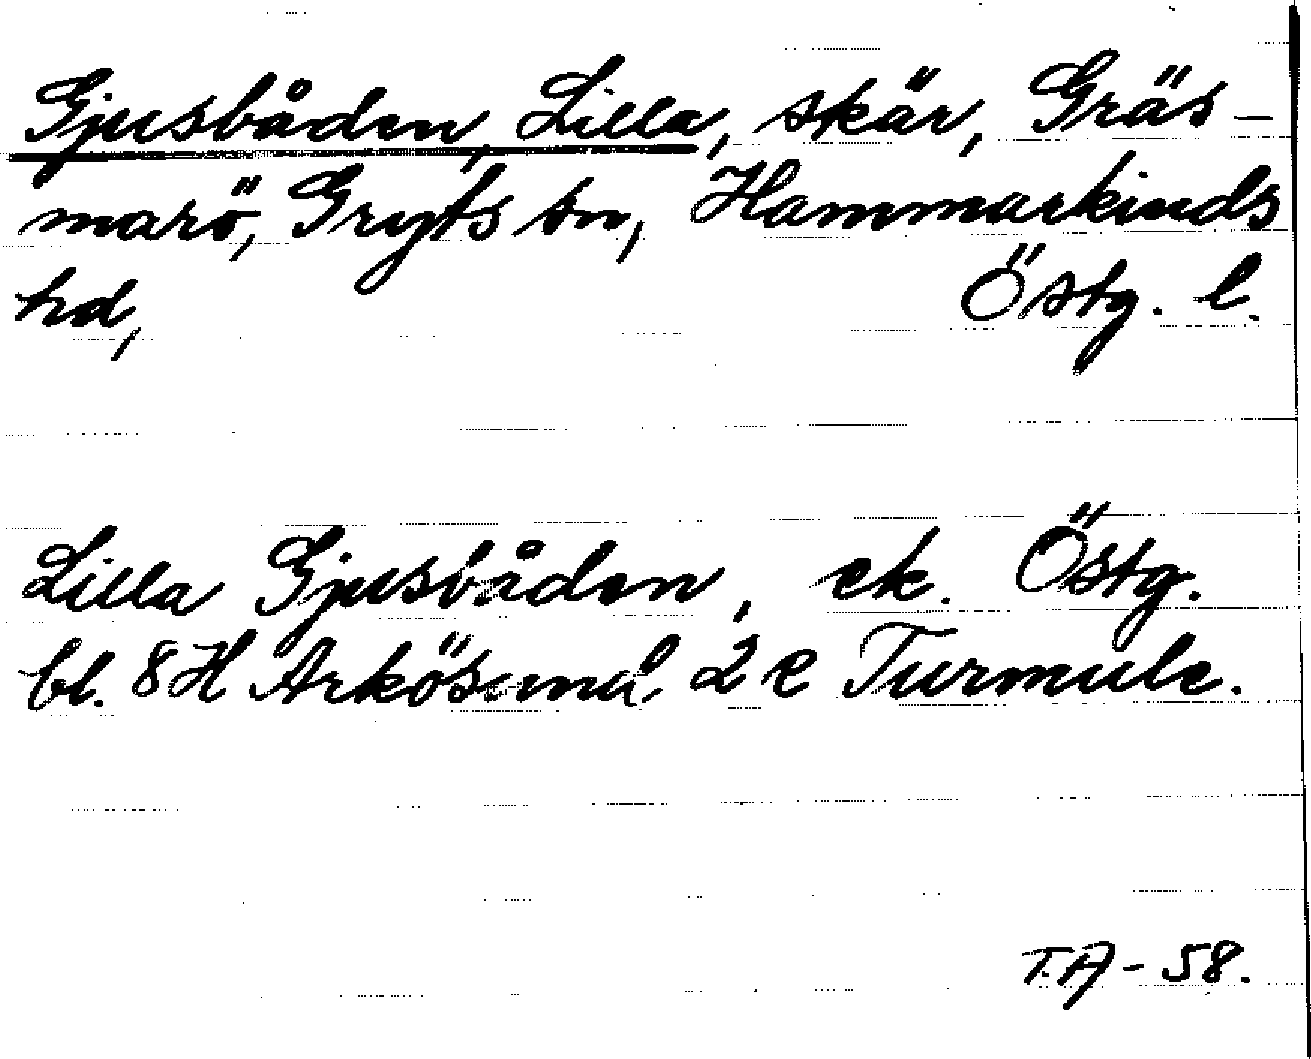 Gjusbåden, Lilla, skär, Gräs-
marö, Gryts sn, Hammarkinds
hd, Östg. l.
Lilla Gjusbåden, ek. Östg.
bl. 8H Arkösund, 2 e Turmule.
T.A - 58.